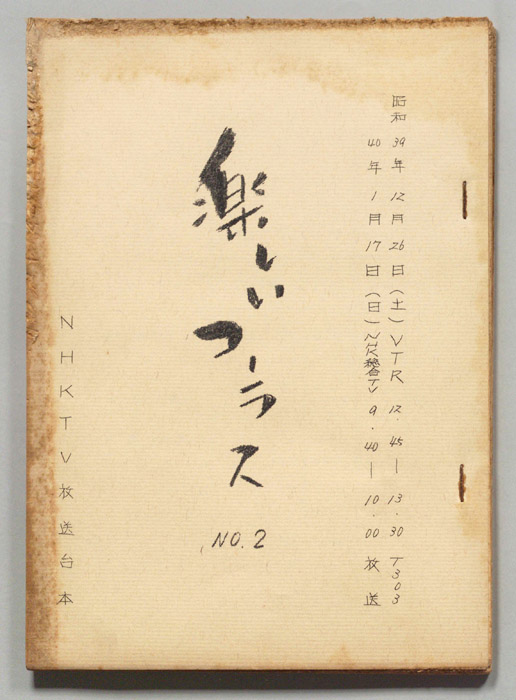 昭和39年12月26日(土)VTR 12.45—13.30 T303
40年1月17日(日)NHK総合TV 9.40—10.00 放送
楽しいコーラス
NO.2
NHKTV放送台本